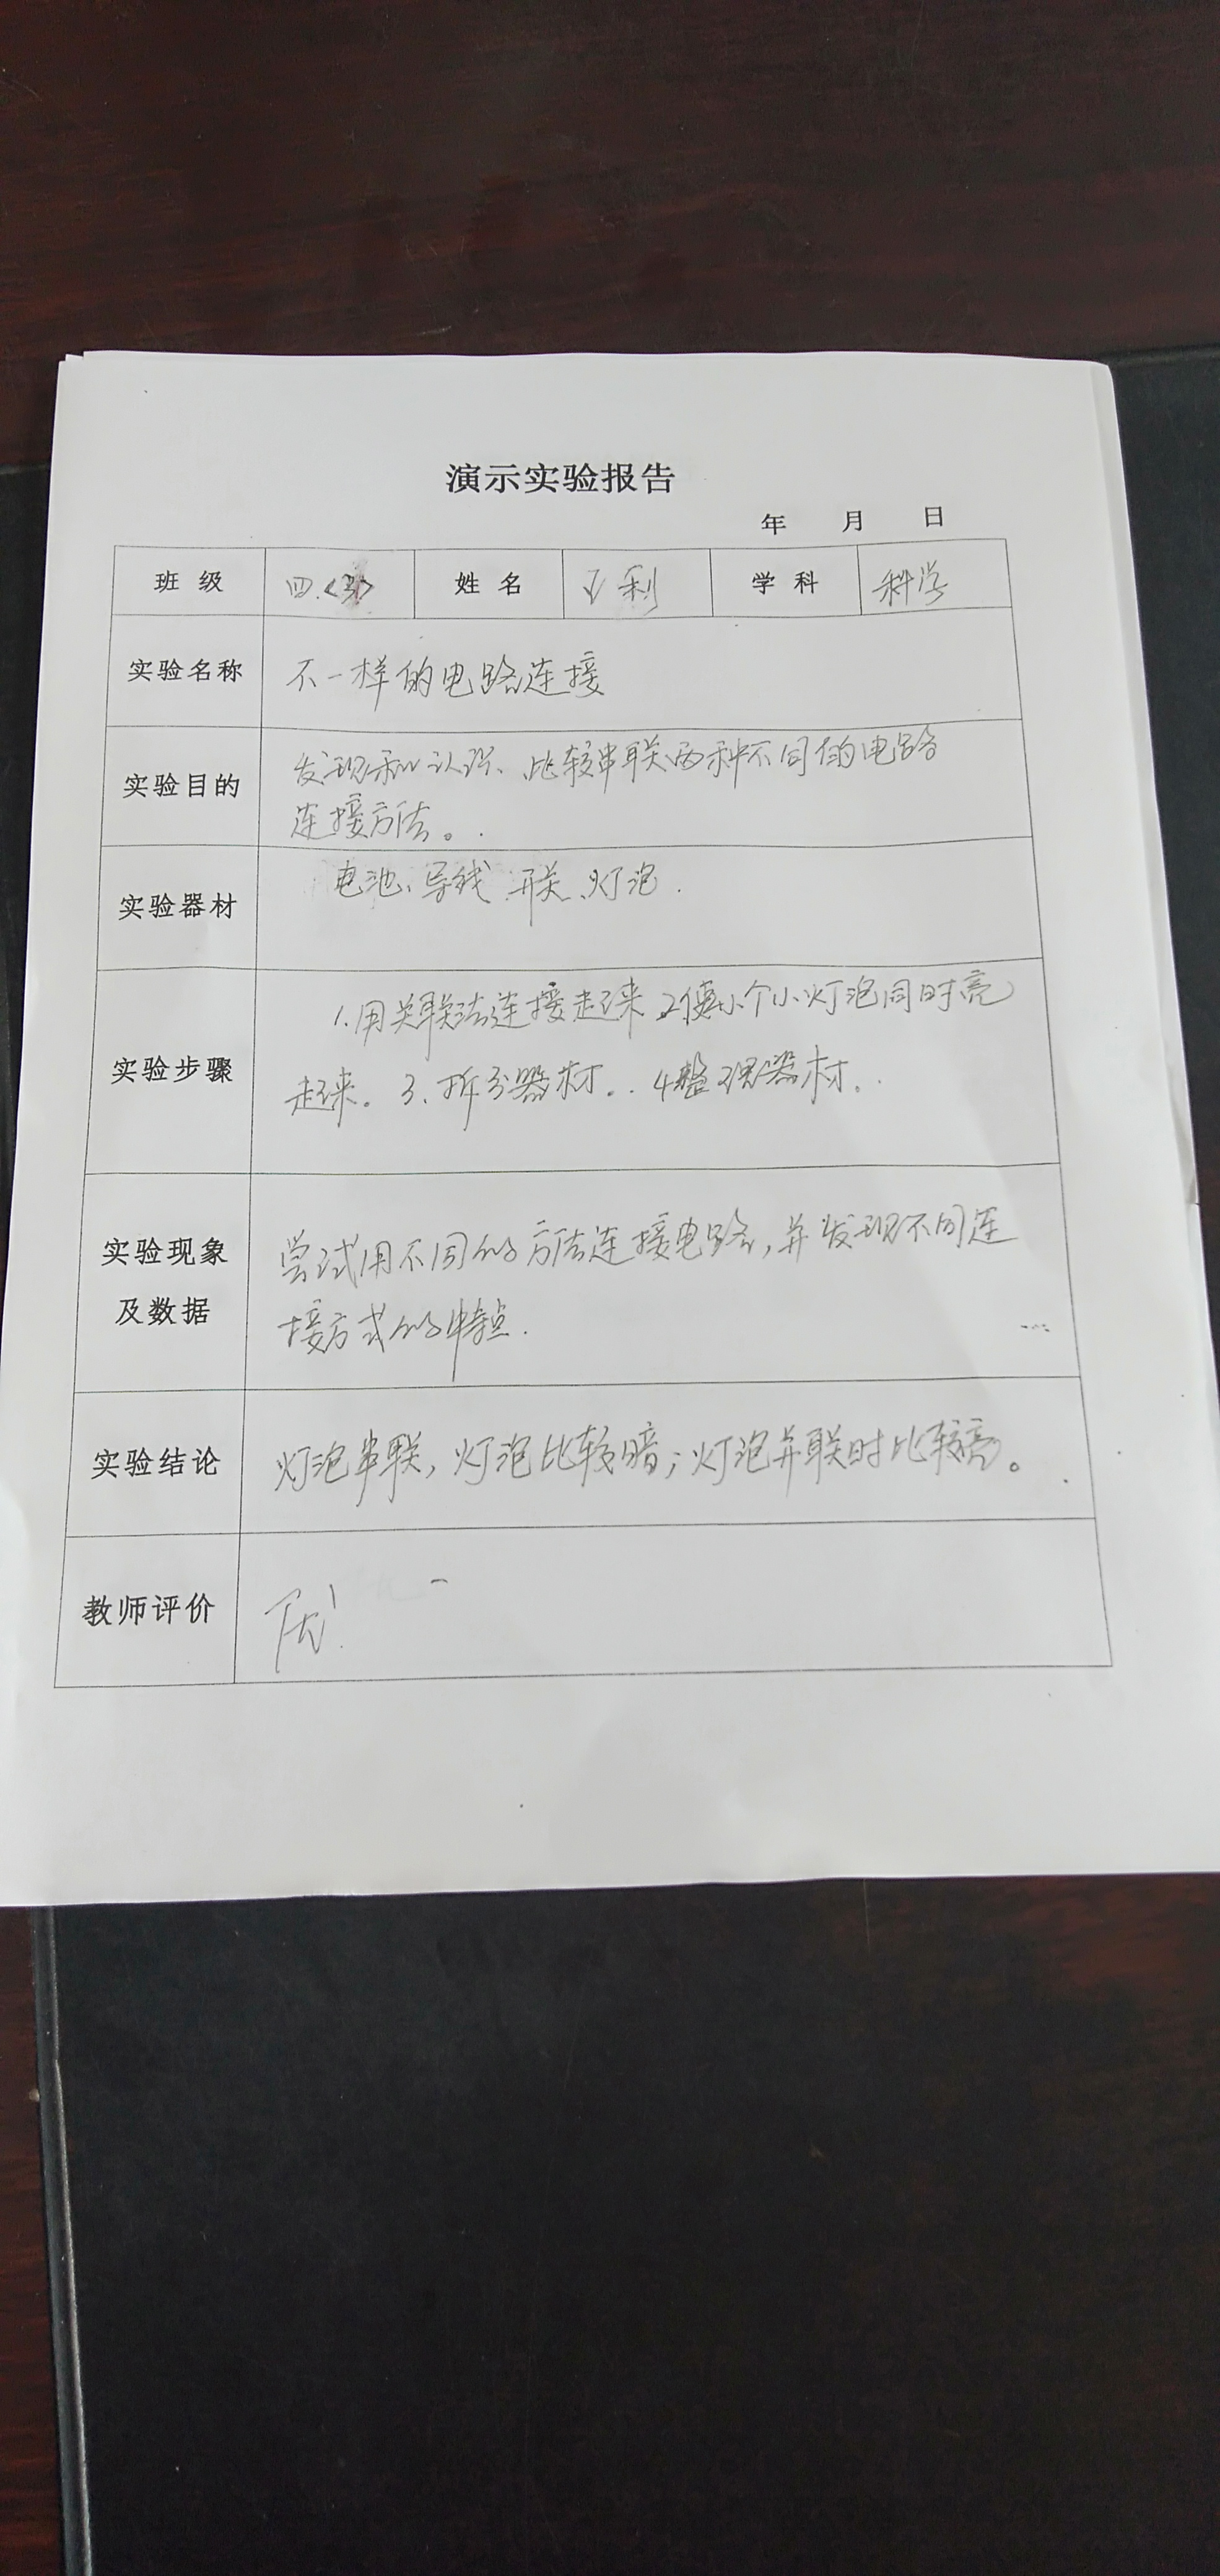 演示实验报告
年 月 日
班级 四.<3> 姓名 王利 学科 科学
实验名称 不一样的电路连接
实验目的 发现和认识、比较串联两种不同的电路
连接方法。
实验器材 电池、导线、开关、灯泡.
实验步骤 1.用关联法连接起来 2.使小个小灯泡同时亮
起来。3、拆分器材。4整理器材.
实验现象
及数据
尝试用不同的方法连接电路,并发现不同连
接方式的特点.
实验结论 灯泡串联,灯泡比较暗;灯泡并联时比较亮。
教师评价 优